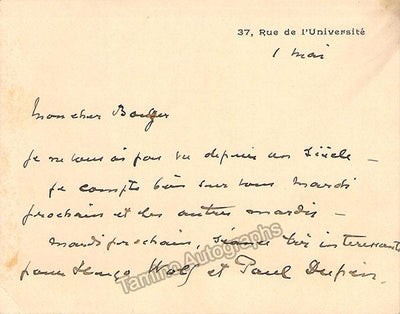 37, Rue de l'Université
1 mai
Mon cher Bauger
Je ne vous ai pas vu depuis un Siècle –
je compte bien sur vous mardi
prochain et les autres mardis –
mardi prochain, séance très intéressante
pour Hugo Wolf et Paul Dupin.
Tamino Autographs